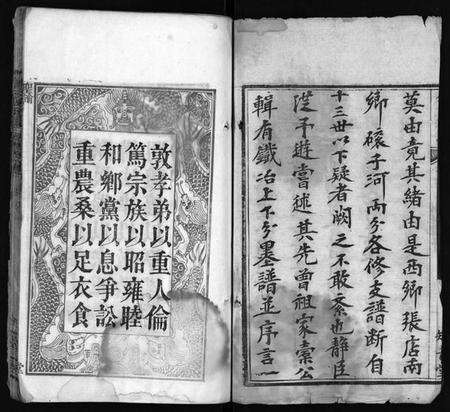 莫由竟其緒由是西鄉張店南
鄉磙子河兩分各修支譜斷自
十三世以下疑者闕之不敢紊也靜臣
從予遊嘗述其先曾祖蒙棠公
輯有鐵冶上下分墨譜並序言一
敦孝弟以重人倫
篤宗族以昭雍睦
和鄉黨以息爭訟
重農桑以足衣食